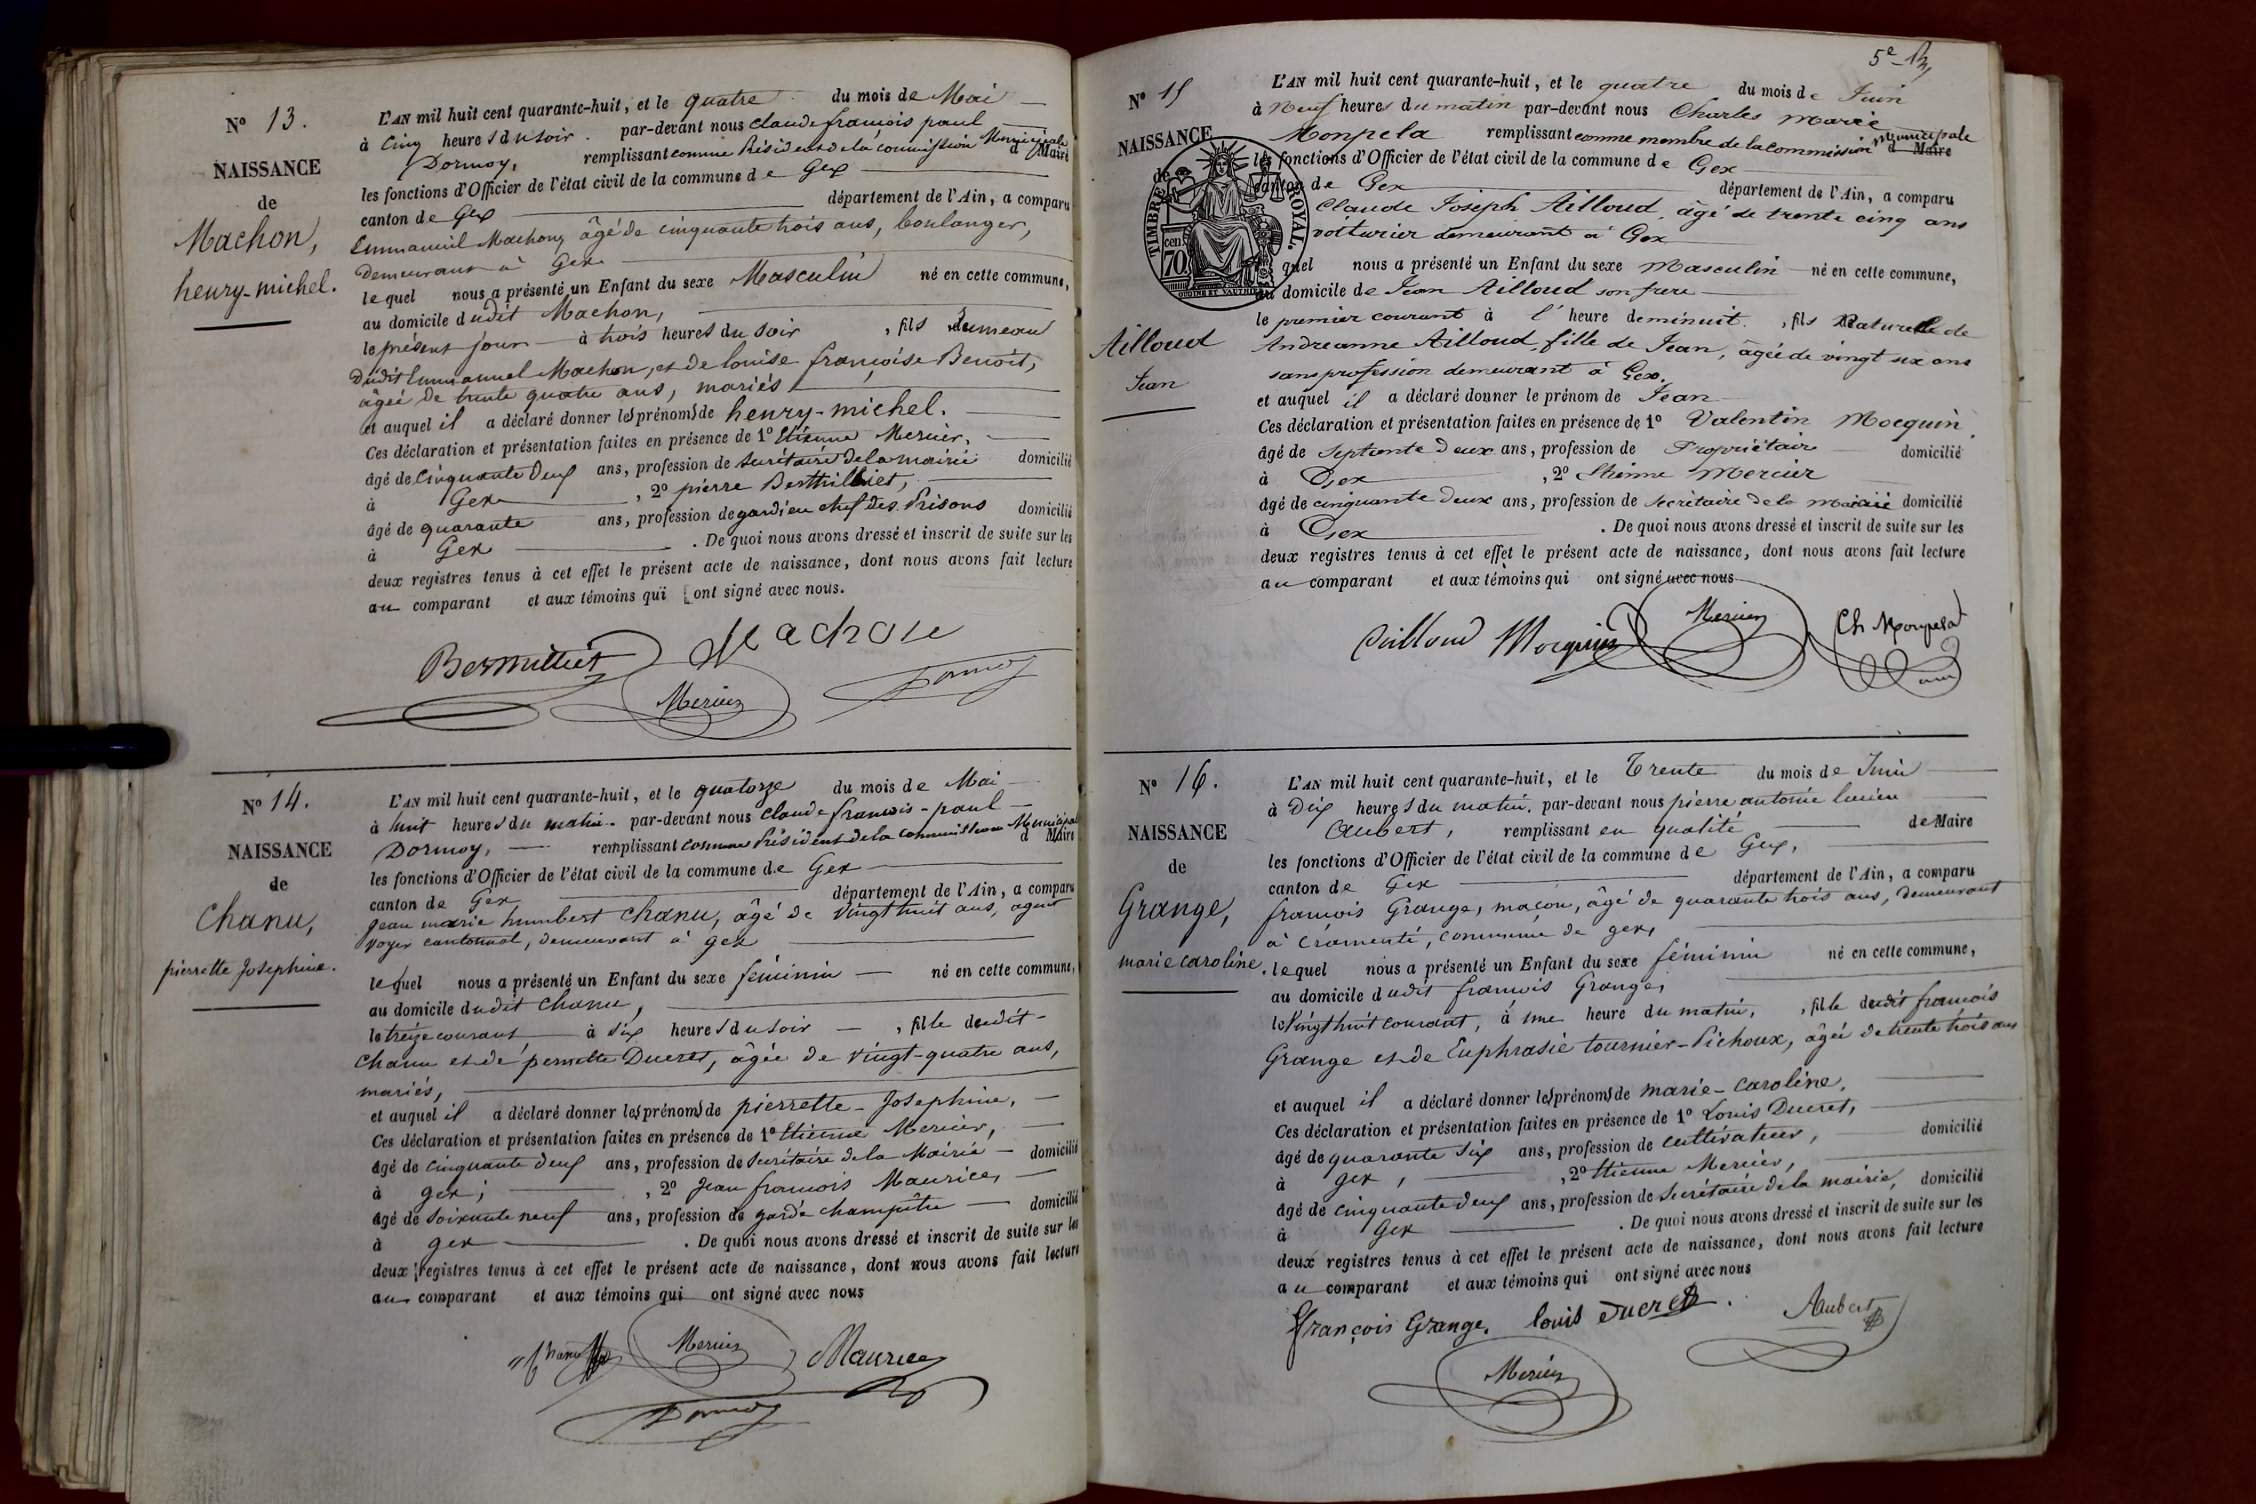 N° 13.
NAISSANCE
de
Machon,
henry-michel.
L'AN mil huit cent quarante-huit, et le quatre du mois de Mai
à cinq heures du soir. par-devant nous claude françois paul
Dormoy, remplissant comme Président de la commission Municipale d Maire
les fonctions d'Officier de l'état civil de la commune de Gex
canton de Gex département de l'Ain, a comparu
Emmanuel Machon, âgé de cinquante trois ans, boulanger,
demeurant à Gex
lequel nous a présenté un Enfant du sexe Masculin né en cette commune,
au domicile dudit Machon,
le présent jour à trois heures du soir , fils
dudit Emmanuel Machon, et de louise françoise Benoit,
âgée de trente quatre ans, mariés
et auquel il a déclaré donner les prénoms de henry-michel.
Ces déclaration et présentation faites en présence de 1° Etienne Mercier,
âgé de cinquante deux ans, profession de secrétaire de la mairie domicilié
à Gex , 2° pierre Berthilliet,
âgé de quarante ans, profession de gardien chef des Prisons domicilié
à Gex . De quoi nous avons dressé et inscrit de suite sur les
deux registres tenus à cet effet le présent acte de naissance, dont nous avons fait lecture
au comparant et aux témoins qui ont signé avec nous.
Machon
Mercier
Dormoy
N° 14.
NAISSANCE
de
Chanu,
pierrette Josephine.
L'AN mil huit cent quarante-huit, et le quatorze du mois de Mai
à huit heures du matin. par-devant nous claude françois-paul
Dormoy, remplissant comme Président de la commission Municipale d Maire
les fonctions d'Officier de l'état civil de la commune de Gex
canton de Gex département de l'Ain, a comparu
Jean marie humbert Chanu, âgé de vingt huit ans, agent
voyer cantonnal, demeurant à gex
lequel nous a présenté un Enfant du sexe féminin né en cette commune,
au domicile dudit Chanu,
le treize courant à six heures du soir , fille dudit
Chanu et de pernette Ducret, âgée de vingt-quatre ans,
mariés,
et auquel il a déclaré donner les prénoms de pierrette-Josephine,
Ces déclaration et présentation faites en présence de 1° Etienne Mercier,
âgé de cinquante deux ans, profession de secrétaire de la Mairie domicilié
à gex; , 2° Jean françois Maurice,
âgé de soixante neuf ans, profession de garde champêtre domicilié
à gex . De quoi nous avons dressé et inscrit de suite sur les
deux registres tenus à cet effet le présent acte de naissance, dont nous avons fait lecture
au comparant et aux témoins qui ont signé avec nous
Chanu Mercier Maurice
Dormoy
N° 15
NAISSANCE
de
Ailloud
Jean
TIMBRE ROYAL.
70 cen
L'AN mil huit cent quarante-huit, et le quatre du mois de Juin
à Neuf heures du matin par-devant nous Charles Marie
Monpela remplissant comme membre de la commission Municipale d Maire
les fonctions d'Officier de l'état civil de la commune de Gex
canton de Gex département de l'Ain, a comparu
Claude Joseph Ailloud, âgé de trente cinq ans
voiturier demeurant à Gex
quel nous a présenté un Enfant du sexe Masculin né en cette commune,
au domicile de Jean Ailloud son frere
le premier courant à l' heure de minuit. , fils Naturel de
Andreanne Ailloud, fille de Jean, âgée de vingt six ans
sans profession demeurant à Gex.
et auquel il a déclaré donner le prénom de Jean
Ces déclaration et présentation faites en présence de 1° Valentin Mocquin
âgé de Septante Deux ans, profession de Propriétaire domicilié
à Gex , 2° Etienne Mercier
âgé de cinquante deux ans, profession de Secrétaire de la Mairie domicilié
à Gex . De quoi nous avons dressé et inscrit de suite sur les
deux registres tenus à cet effet le présent acte de naissance, dont nous avons fait lecture
au comparant et aux témoins qui ont signé avec nous
Ailloud Mocquin Mercier Ch Monpela
N° 16.
NAISSANCE
de
Grange,
marie caroline.
L'AN mil huit cent quarante-huit, et le Trente du mois de Juin
à Dix heures du matin. par-devant nous pierre antoine lucien
Aubert, remplissant en qualité de Maire
les fonctions d'Officier de l'état civil de la commune de Gex,
canton de Gex département de l'Ain, a comparu
françois Grange, maçon, âgé de quarante trois ans, demeurant
à , commune de gex,
lequel nous a présenté un Enfant du sexe féminin né en cette commune,
au domicile dudit françois Grange,
le Vingt huit courant, à une heure du matin, , fille dudit françois
Grange et de Euphrasie tournier-Pichoux, âgée de trente trois ans
et auquel il a déclaré donner les prénoms de marie-caroline.
Ces déclaration et présentation faites en présence de 1° Louis Ducret,
âgé de quarante six ans, profession de cultivateur, domicilié
à gex, , 2° Etienne Mercier,
âgé de cinquante deux ans, profession de secrétaire de la mairie, domicilié
à Gex . De quoi nous avons dressé et inscrit de suite sur les
deux registres tenus à cet effet le présent acte de naissance, dont nous avons fait lecture
au comparant et aux témoins qui ont signé avec nous
françois Grange. louis Ducret. Aubert
Mercier